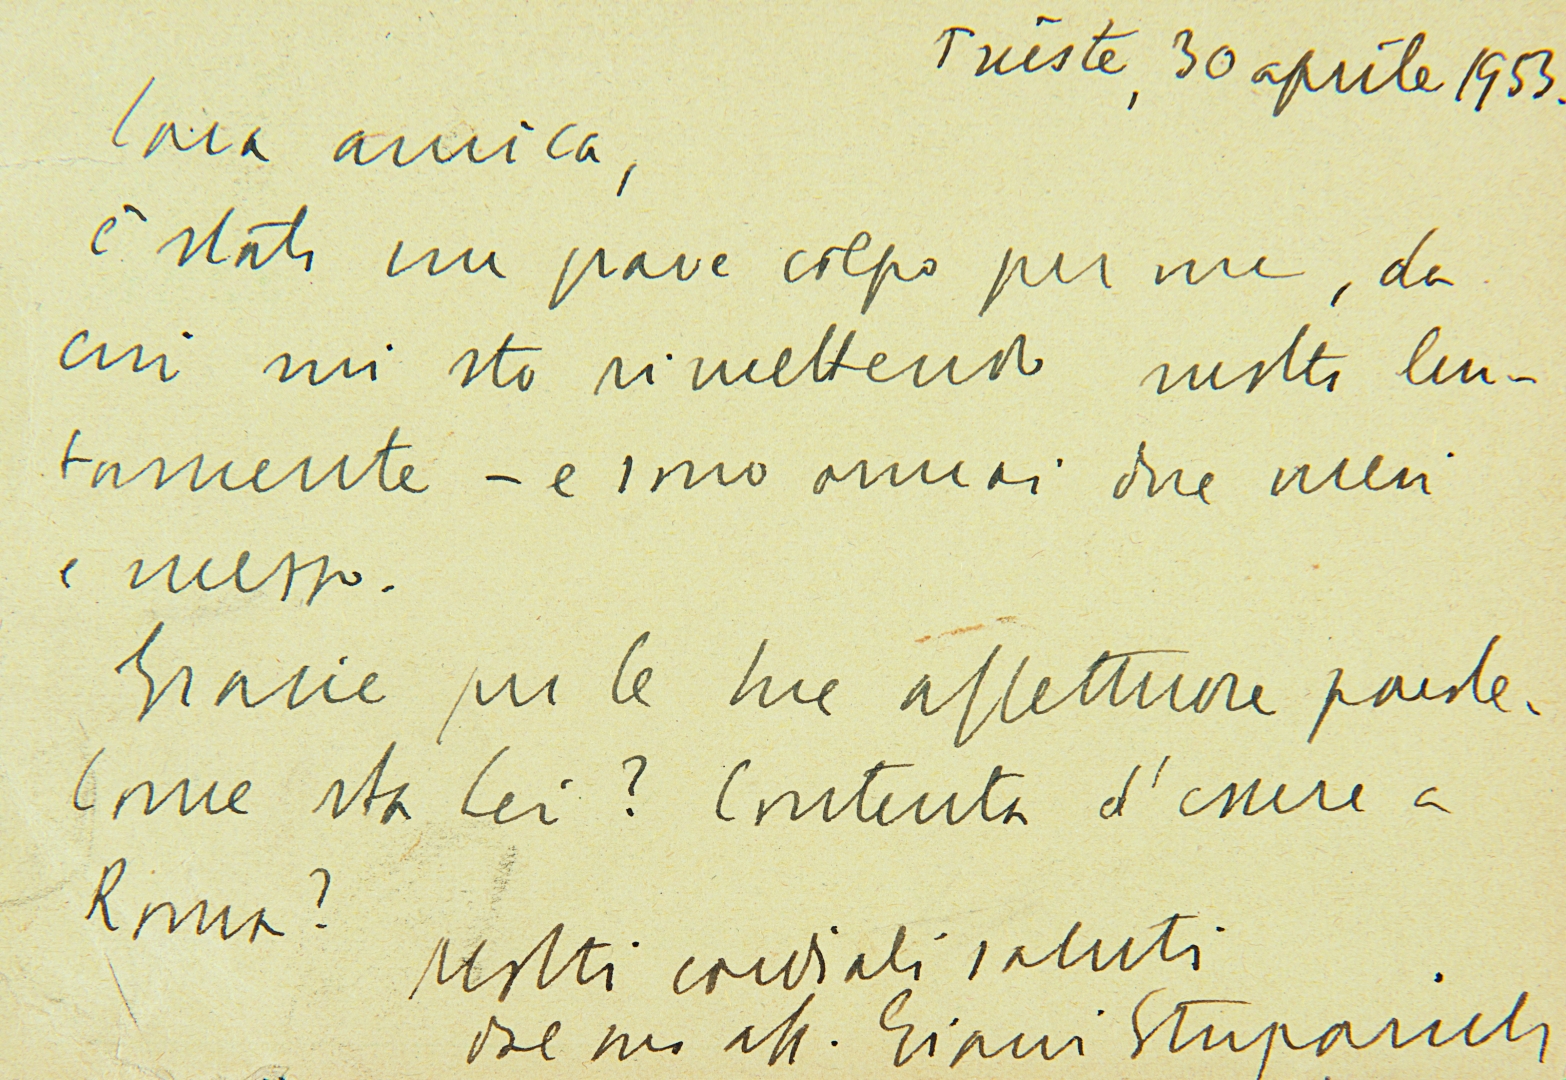 Trieste, 30 aprile 1953.
Cara amica,
è stato un grave colpo per me, da
cui mi sto rimettendo molto len-
tamente – e sono ormai due mesi
e mezzo.
Grazie per le sue affettuose parole.
Come sta Lei? Contenta d'essere a
Roma?
Molti cordiali saluti
dal suo aff. Giani Stuparich